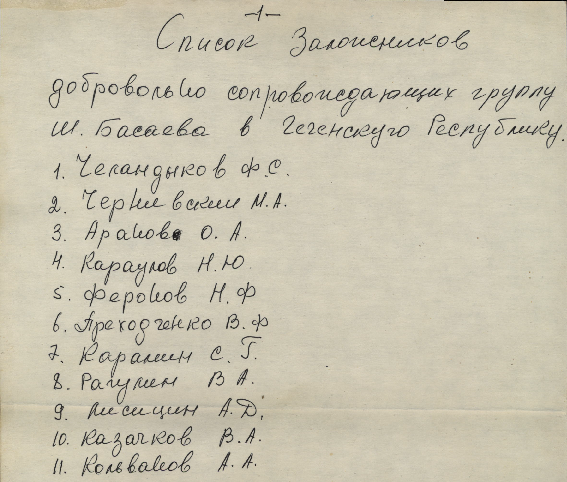 -1-
Список Заложников
добровольно сопровождающих группу
Ш. Басаева в Чеченскую Республику.
1. Челандыков Ф.С.
2. Чернивский М.А.
3. Аранова О. А.
4. Караулов Н.Ю.
5. Феронов Н.Ф
6. Преходченко В.Ф
7. Карамин С. Г.
8. Рагулин В А.
9. Лисицин А.Д.
10. Казачков В.А.
11. Кольванов А.А.